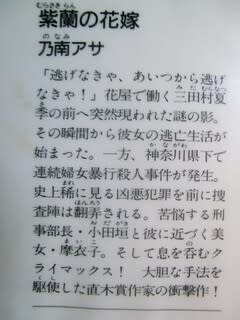 むらさきらん
紫蘭の花嫁
のなみ
乃南アサ
「逃げなきゃ、あいつから逃げ
なきゃ!」花屋で働く三田村夏
季の前へ突然現われた謎の影。
その瞬間から彼女の逃亡生活が
始まった。一方、神奈川県下で
連続婦女暴行殺人事件が発生。
史上稀に見る凶悪犯罪を前に捜
査陣は翻弄される。苦悩する刑
事部長・小田垣と彼に近づく美
女・摩衣子。そして息を呑むク
ライマックス! 大胆な手法を
駆使した直木賞作家の衝撃作!